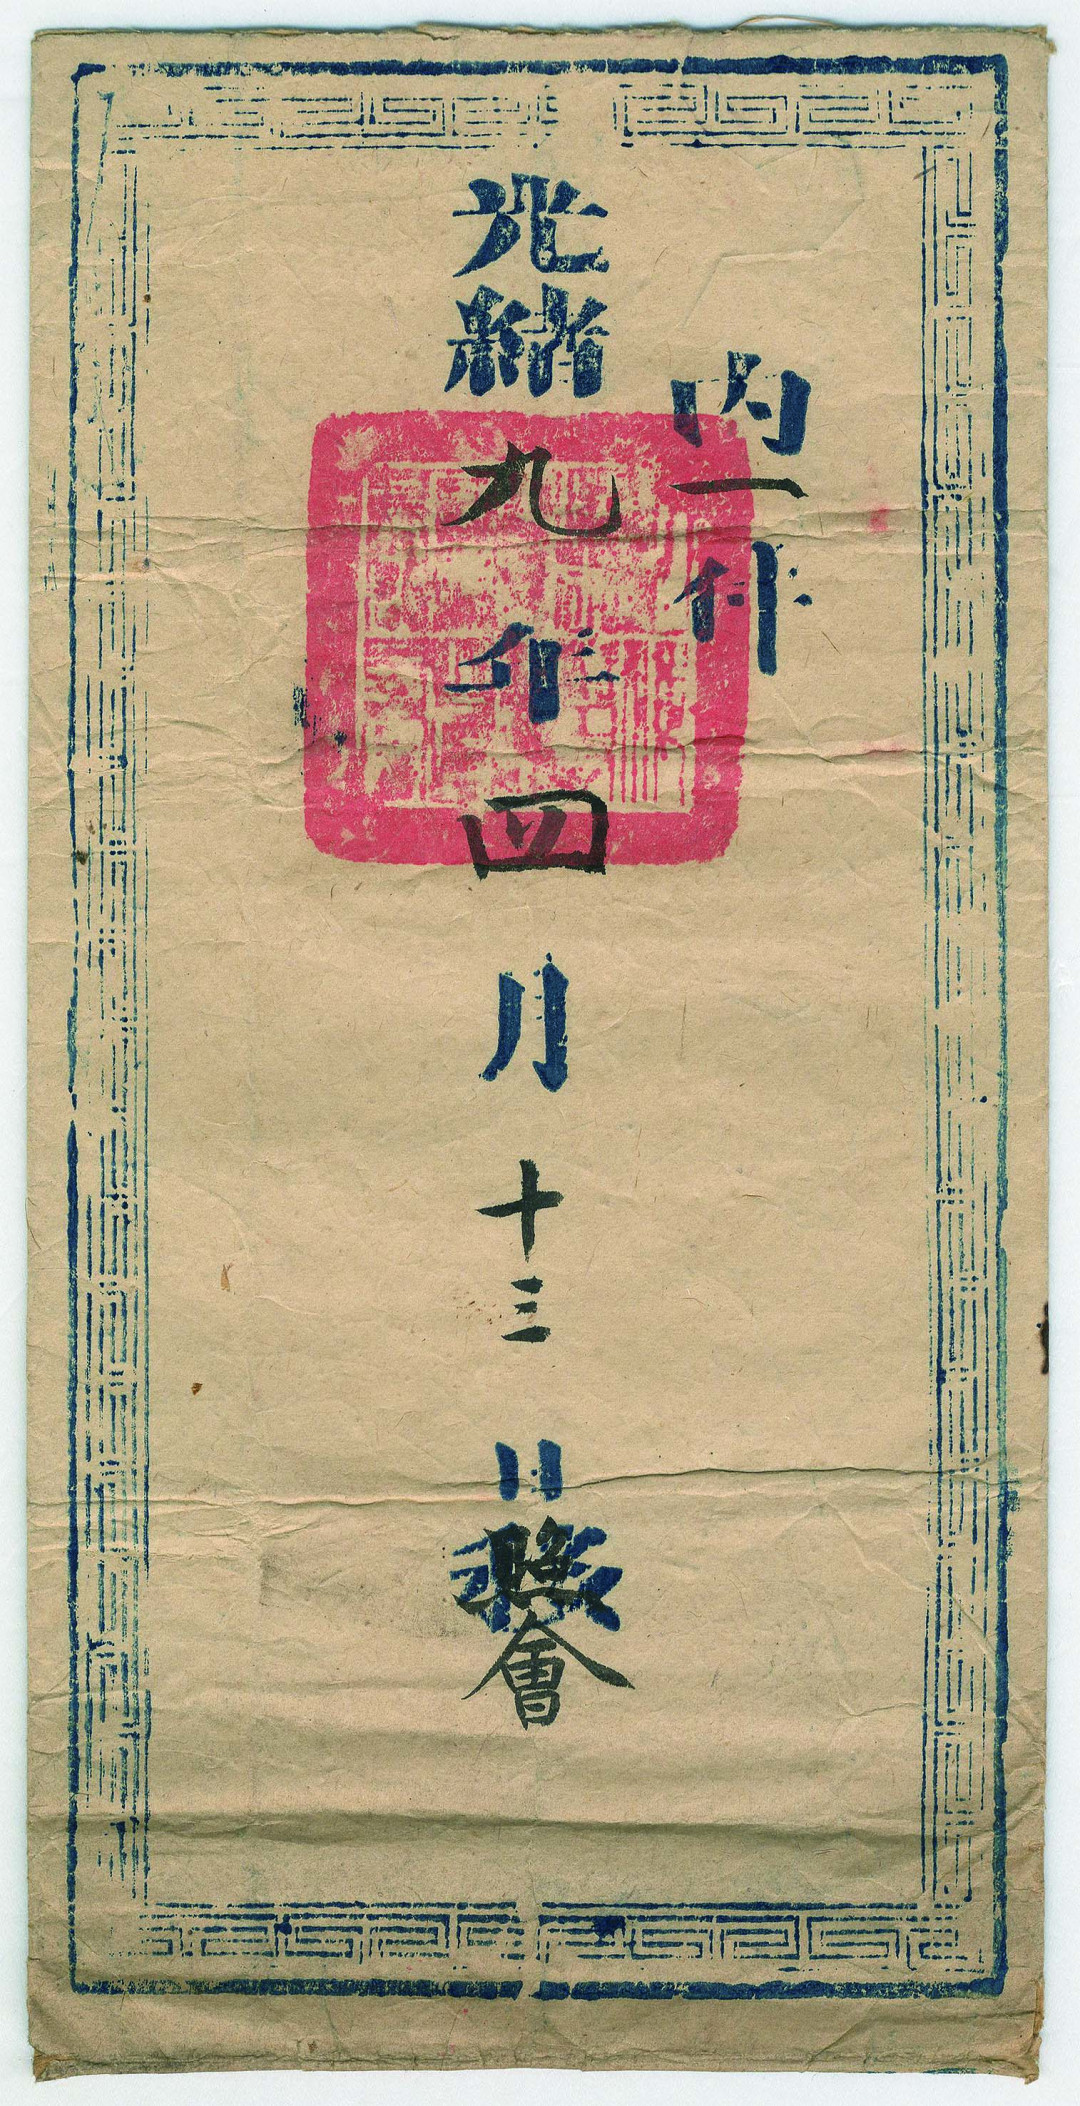 內一件
光緒九年四月十三日照會